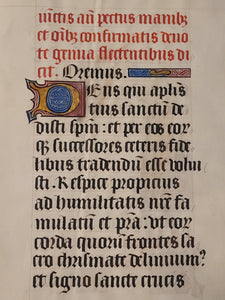 iūctis añ pectus manibꝫ
et oībꝫ confirmatis deuo
te genua flectentibus di
cit. Oremus.
Deus qui aplīs
tuis sanctū de
disti spm̄: et per eos eor
qꝫ successores ceteris fide
libus tradendū esse volui
sti. Respice propicius
ad humilitatis nr̄e fa
mulatū et pr̄a: vt eor
corda quorū frontes sa
cro chrismate deliniuim?
et signo sancte crucis